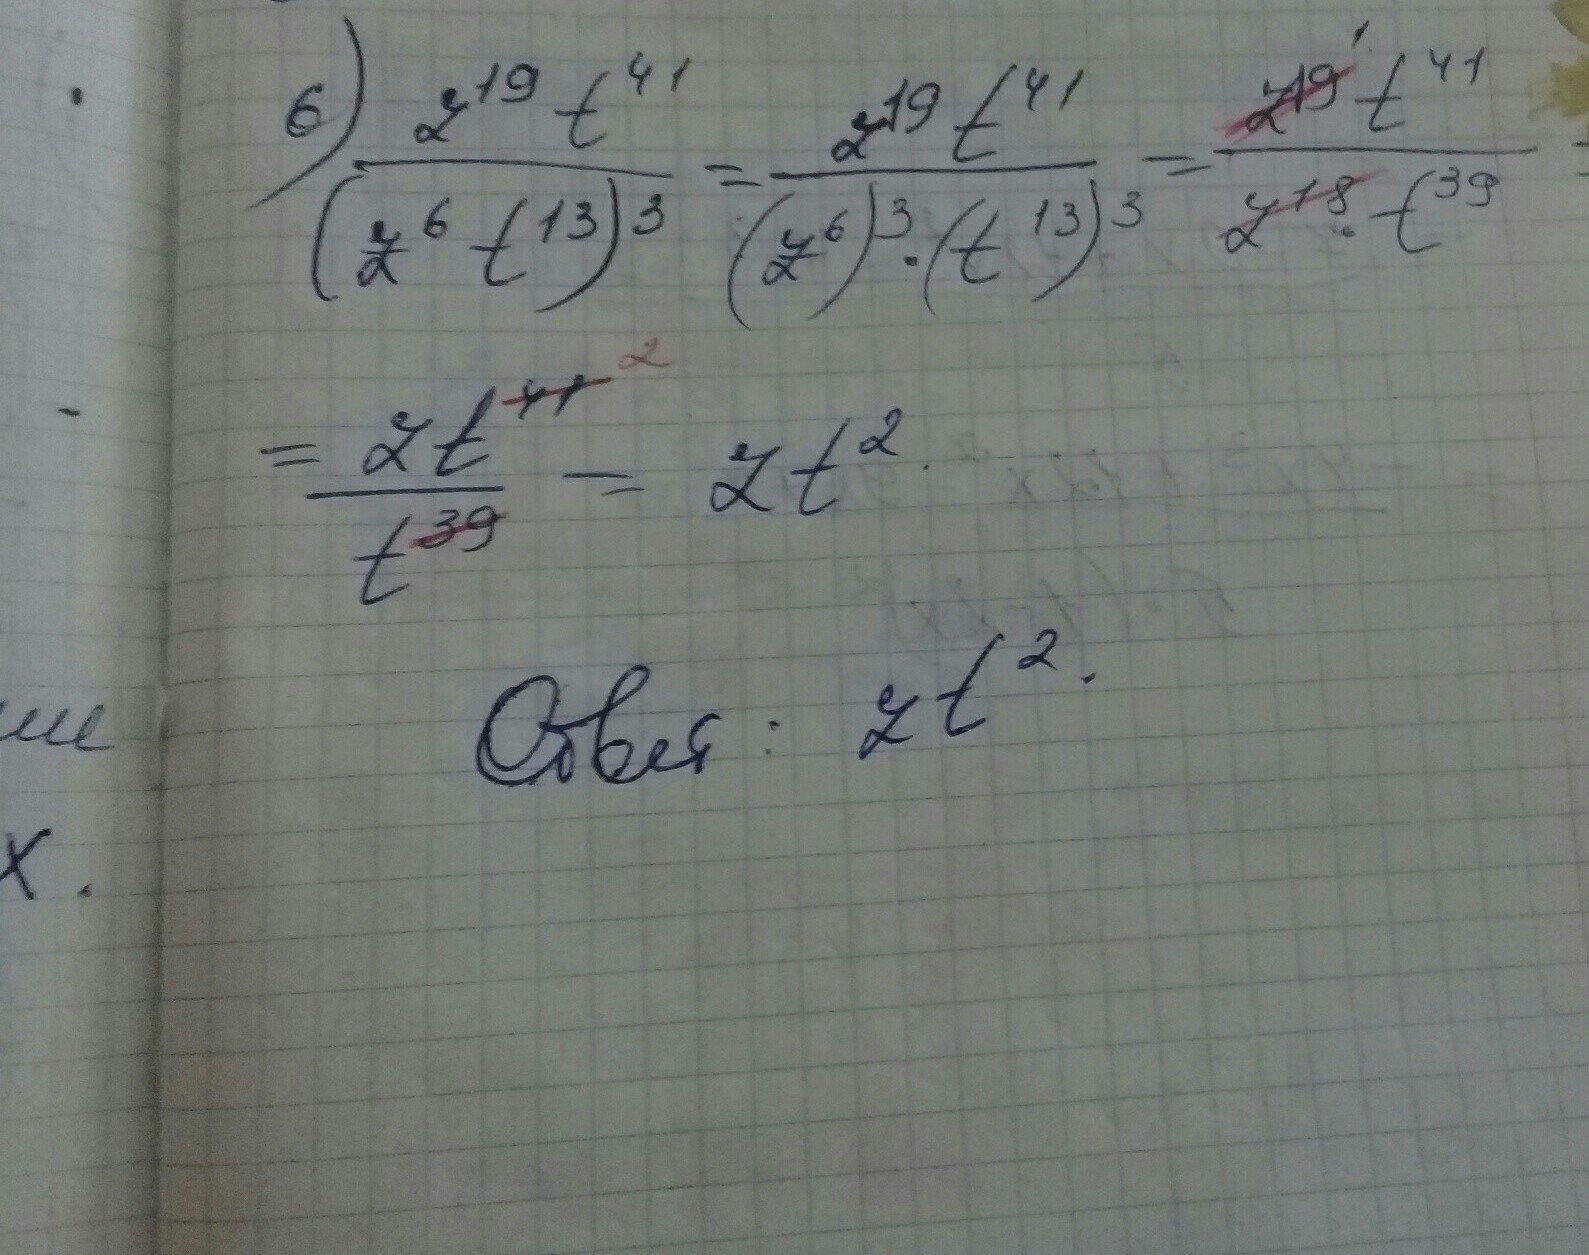 6) z^19 t^41 / (z^6 t^13)^3 = z^19 t^41 / (z^6)^3 · (t^13)^3 = z^19 1 t^41 / z^18 · t^39 =
= z t^41 2 / t^39 = z t^2.
Ответ: z t^2.
х.